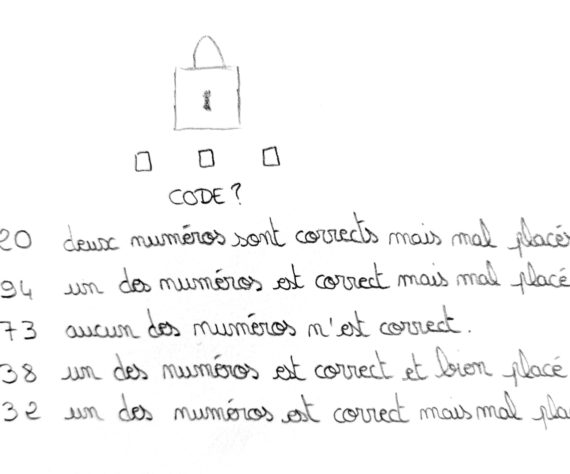 CODE?
20 deux numéros sont corrects mais mal placés
94 un des numéros est correct mais mal placé
73 aucun des numéros n'est correct.
38 un des numéros est correct et bien placé
32 un des numéros est correct mais mal pla